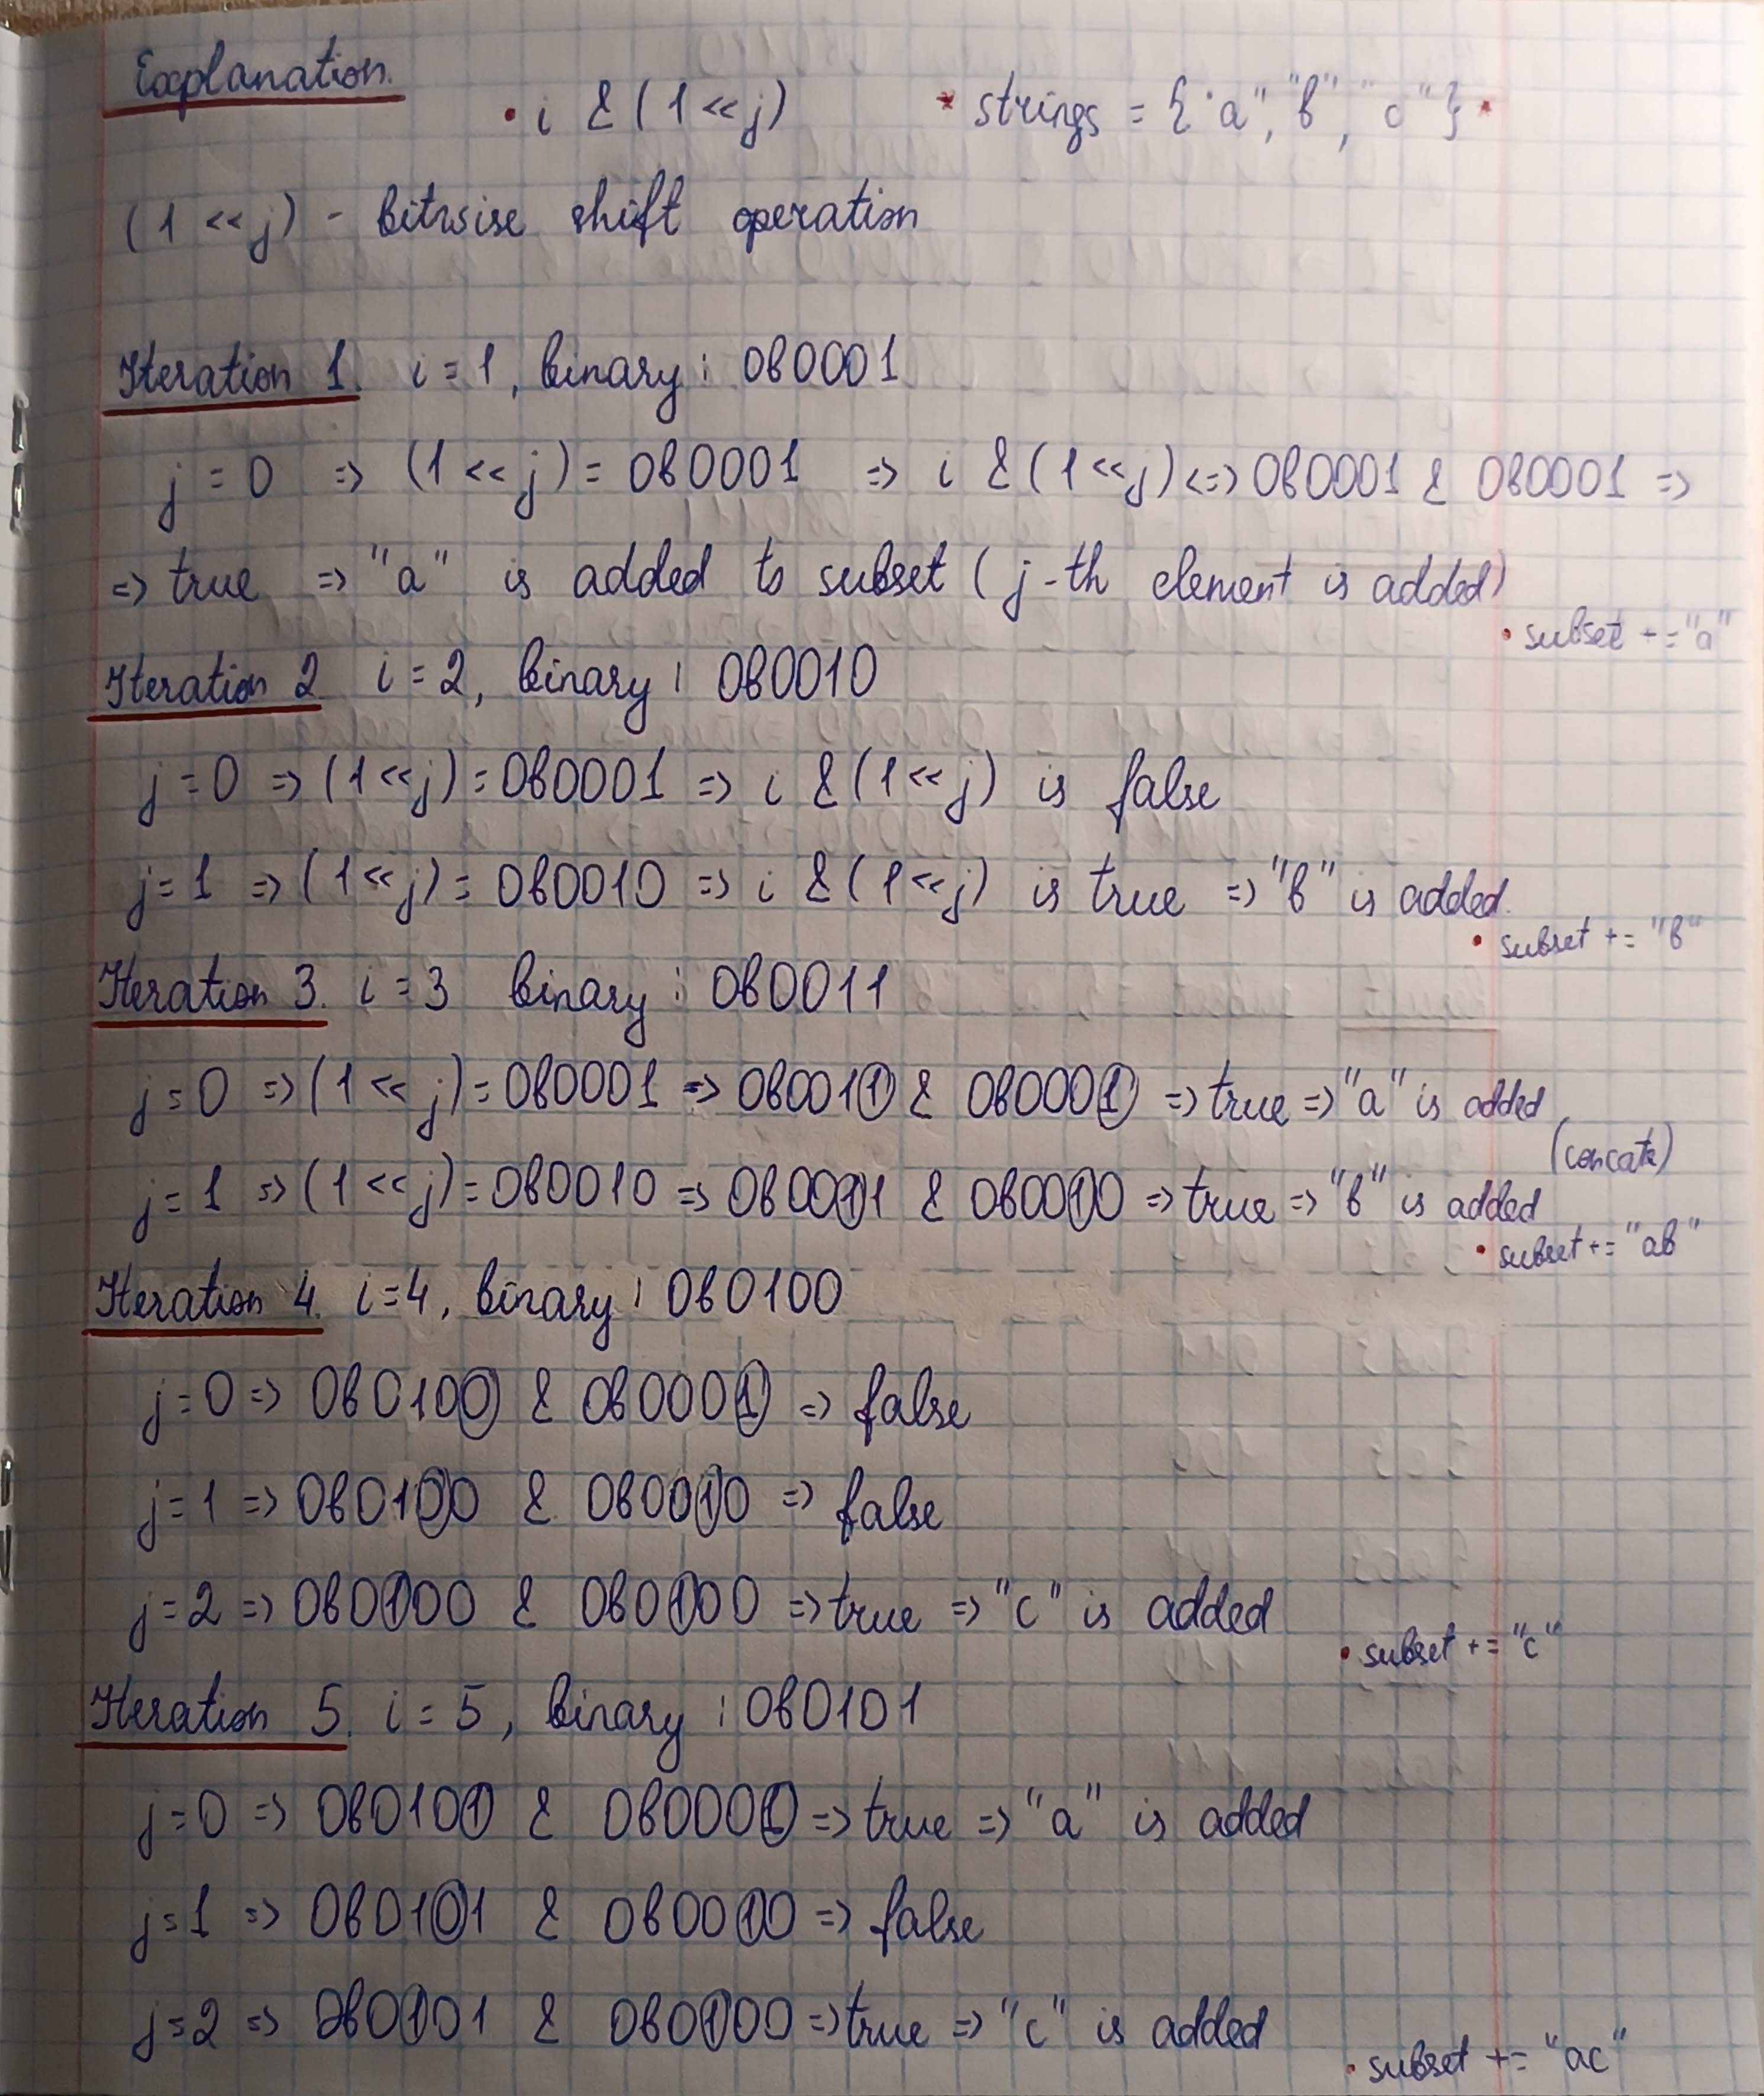 Explanation.
• i & (1 << j) * strings = {"a", "b", "c"} *
(1 << j) - bitwise shift operation
Iteration 1. i = 1, binary: 0b0001
j = 0 => (1 << j) = 0b0001 => i & (1 << j) <=> 0b0001 & 0b0001 =>
=> true => "a" is added to subset (j-th element is added)
• subset += "a"
Iteration 2. i = 2, binary: 0b0010
j = 0 => (1 << j) = 0b0001 => i & (1 << j) is false
j = 1 => (1 << j) = 0b0010 => i & (1 << j) is true => "b" is added.
• subset += "b"
Iteration 3. i = 3 binary: 0b0011
j = 0 => (1 << j) = 0b0001 => 0b0011 & 0b0001 => true => "a" is added
(concate)
j = 1 => (1 << j) = 0b0010 => 0b0011 & 0b0010 => true => "b" is added
• subset += "ab"
Iteration 4. i = 4, binary: 0b0100
j = 0 => 0b0100 & 0b0001 => false
j = 1 => 0b0100 & 0b0010 => false
j = 2 => 0b0100 & 0b0100 => true => "c" is added
• subset += "c"
Iteration 5. i = 5, binary: 0b0101
j = 0 => 0b0101 & 0b0001 => true => "a" is added
j = 1 => 0b0101 & 0b0010 => false
j = 2 => 0b0101 & 0b0100 => true => "c" is added
• subset += "ac"